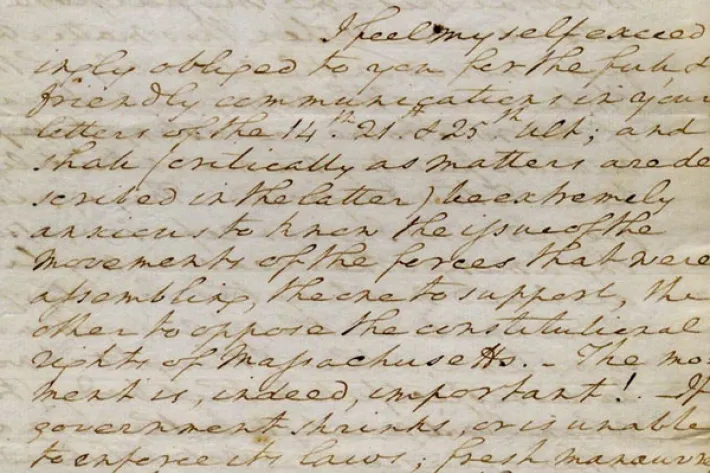 I feel myself exceed
ingly obliged to you for the full &
friendly communications in your
letters of the 14th. 21st. & 25th ult; and
shall (critically as matters are de
scribed in the latter) be extremely
anxious to know the issue of the
movements of the forces that were
assembling, the one to support, the
other to oppose the constitutional
rights of Massachusetts. – The mo=
ment is, indeed, important! – If
government shrinks, or is unable
to enforce its laws; fresh manœuvr